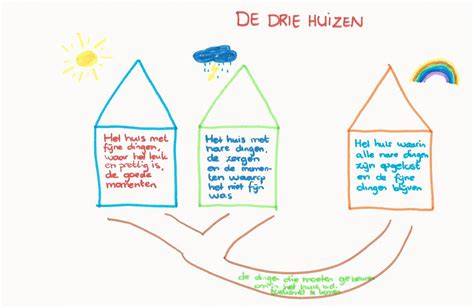 DE DRIE HUIZEN
Het huis met
fijne dingen,
waar het leuk
en prettig is,
de goede
momenten
Het huis met
nare dingen,
de zorgen
en de momen-
ten waarop
het niet fijn
was
Het huis waarin
alle nare dingen
zijn opgelost
en de fijne
dingen blijven
de dingen die moeten gebeuren
om het huis v.d.
te komen